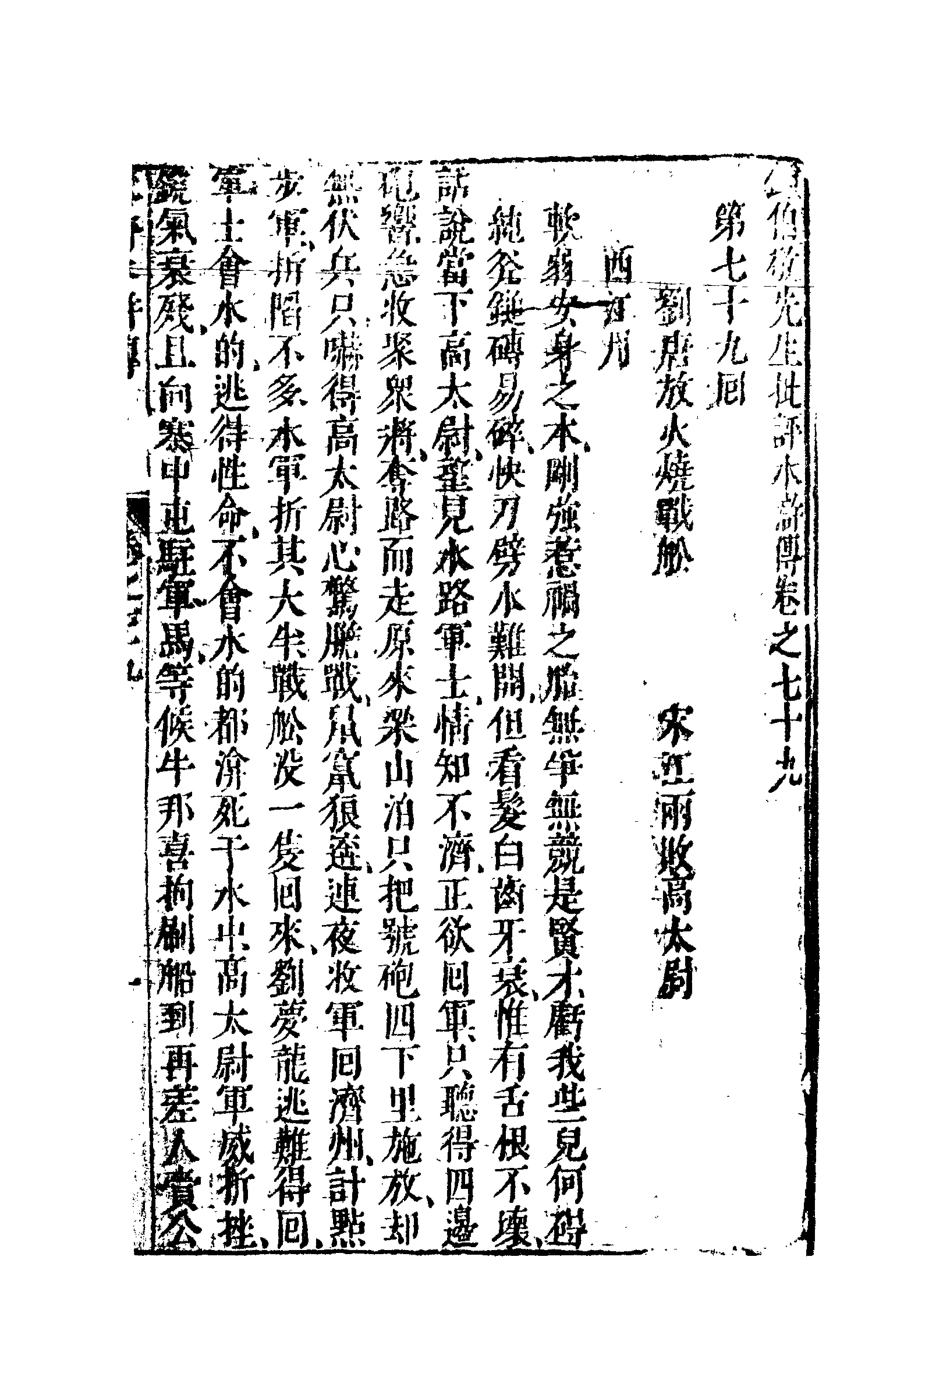 鍾伯敬先生批評水滸傳卷之七十九
第七十九囘
劉唐放火燒戰舩　宋江兩敗高太尉
西江月
軟弱安身之本、剛強惹禍之胎、無爭無競是賢才、虧我些兒何碍
鈍斧鎚磚易碎、快刀劈水難開、但看髮白齒牙衰、惟有舌根不壞、
話說當下高太尉、望見水路軍士、情知不濟、正欲囘軍、只聽得四邊
砲響、急收聚衆將、奪路而走、原來梁山泊只把號砲四下里施放、却
無伏兵、只嚇得高太尉心驚膽戰、鼠竄狼奔、連夜收軍囘濟州、計點
步軍、折陷不多、水軍折其大半、戰舩沒一隻囘來、劉夢龍逃難得囘、
軍士會水的、逃得性命、不會水的、都渰死于水中、高太尉軍威折挫、
銳氣衰殘、且向寨中屯駐軍馬、等候牛邦喜拘刷船到、再差人賫公